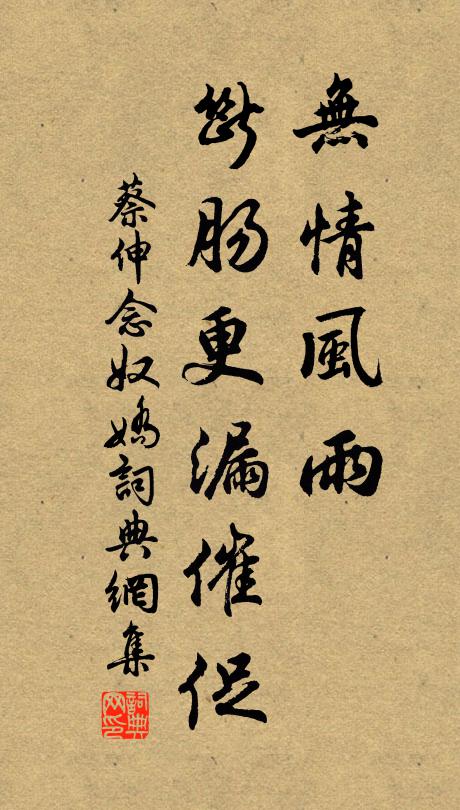 無情風雨
斷腸更漏催促
蔡伸念奴嬌詞典網集
詞典网印